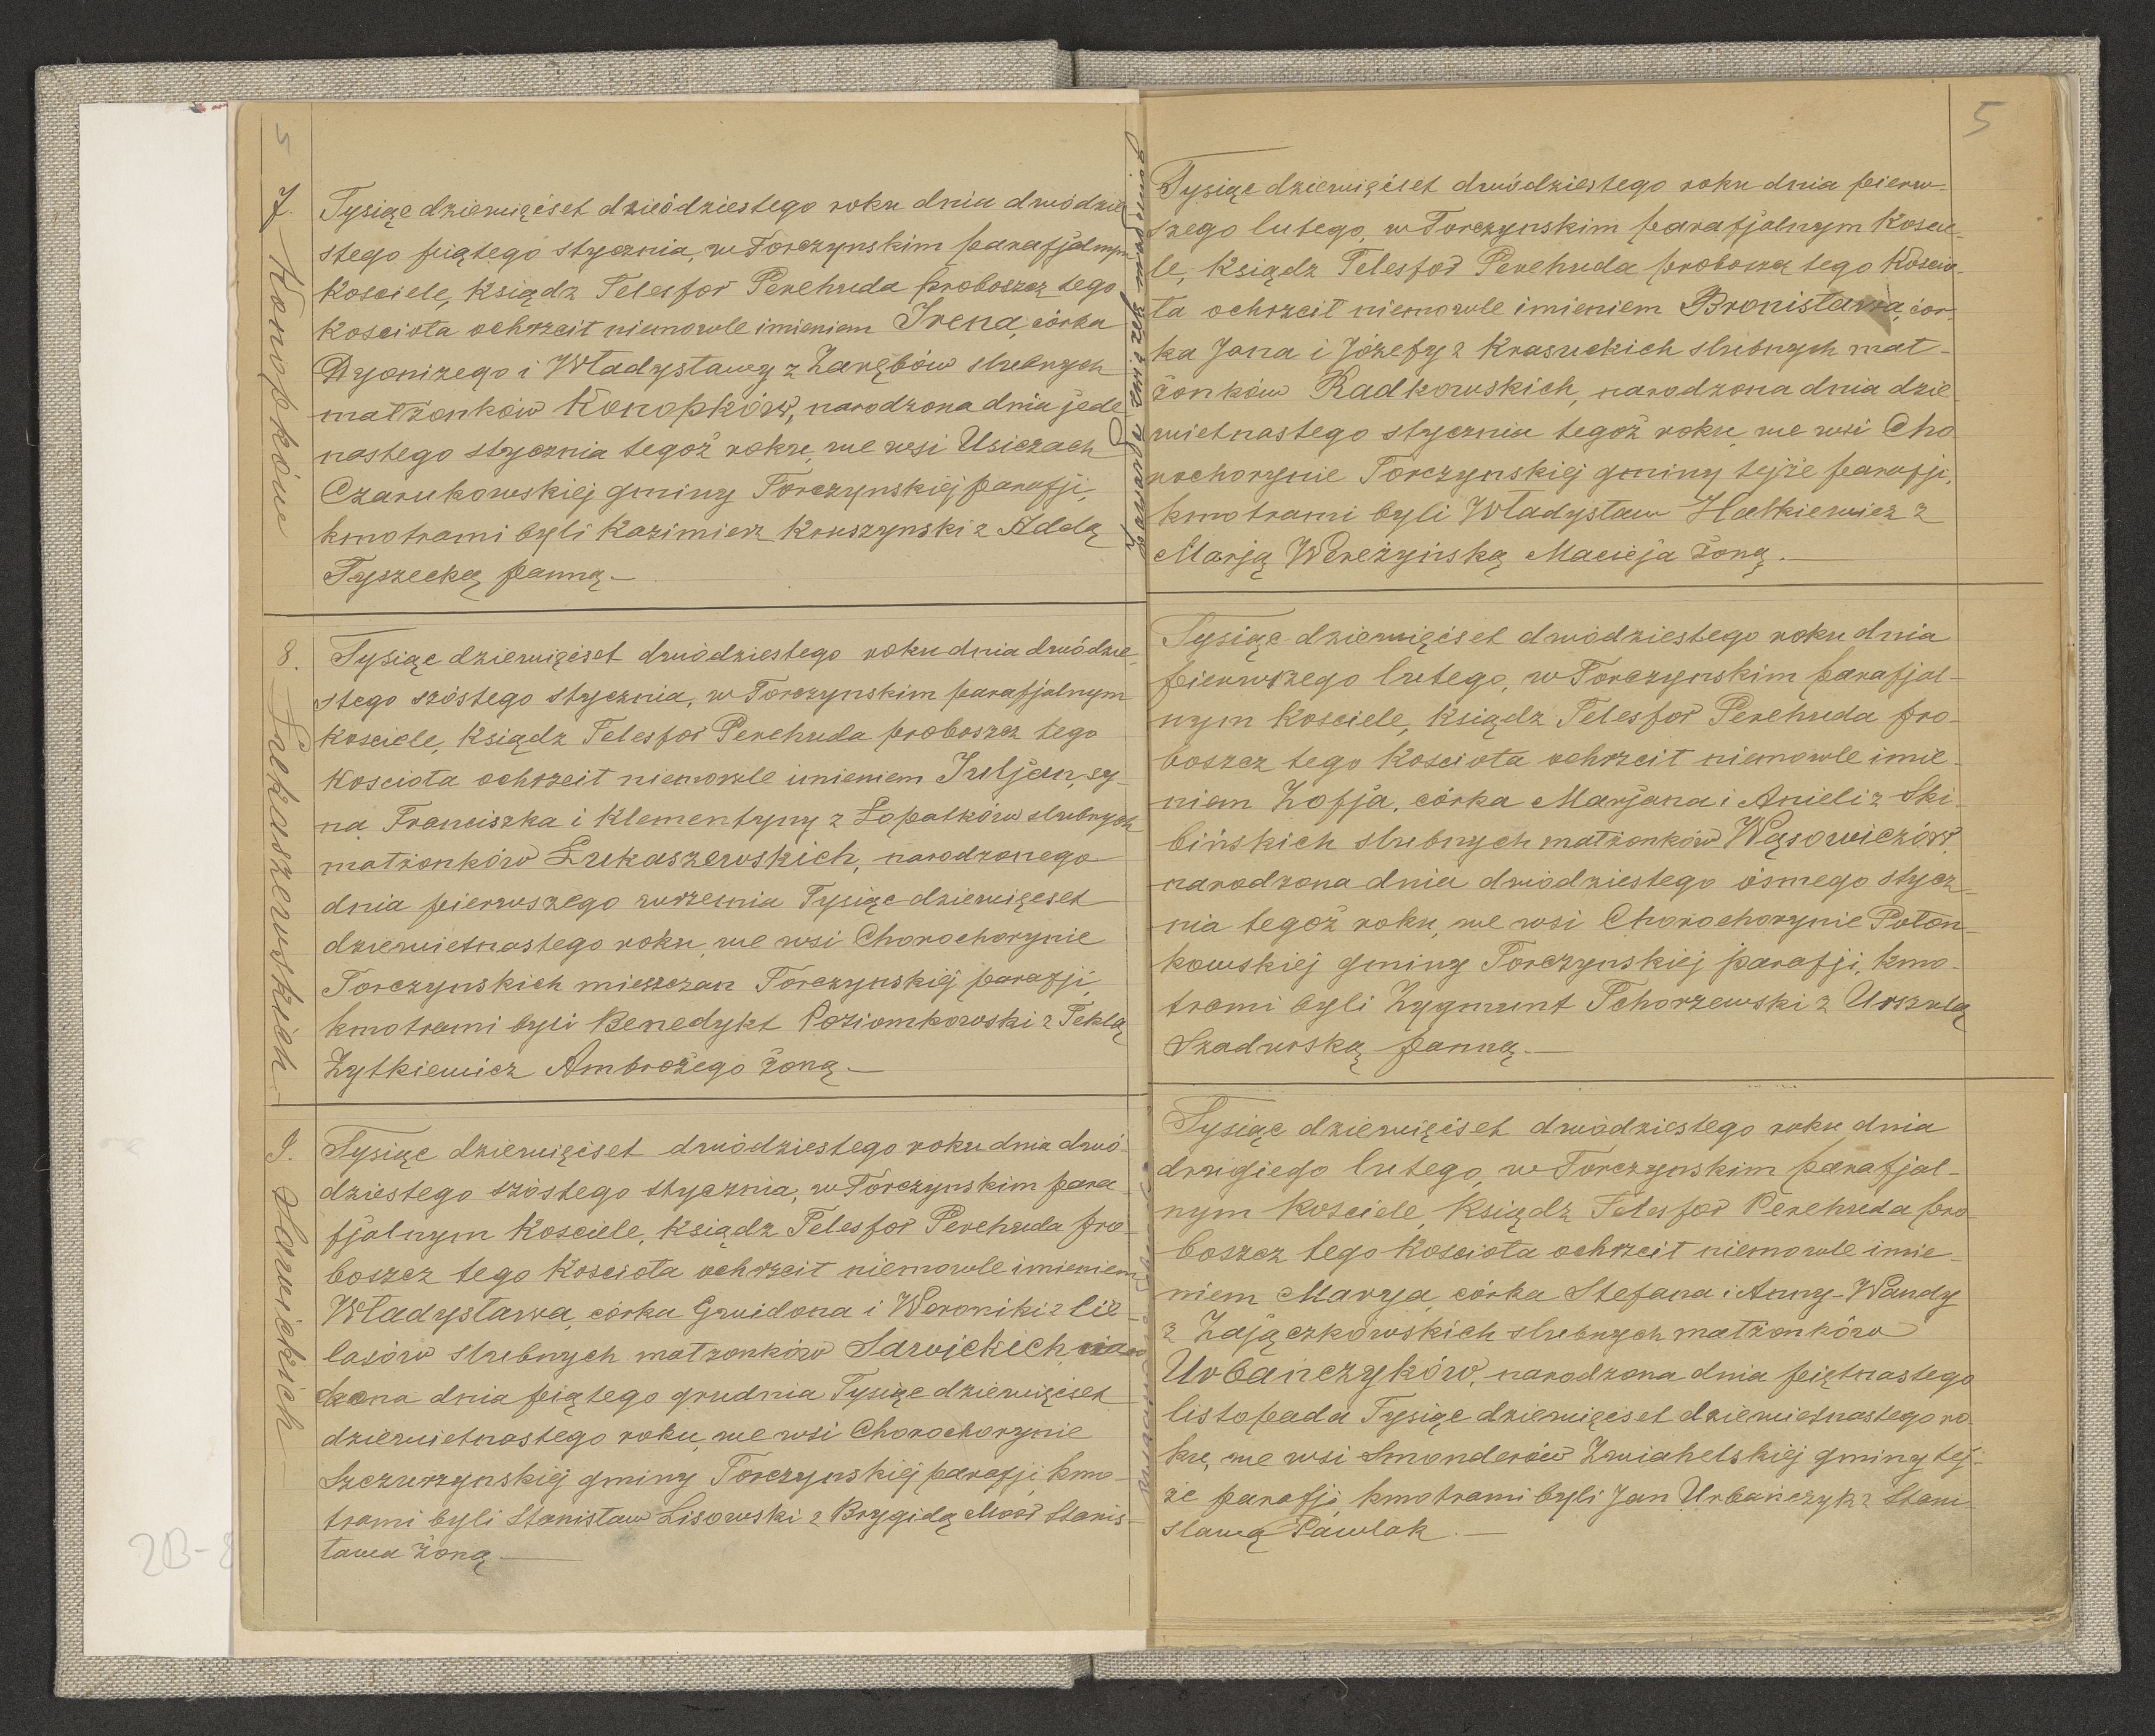 5
7. Konopków
Tysiąc dziewięćset dwódziestego roku dnia dwódzie
stego piątego stycznia, w Torczynskim parafjalnym
kosciele, ksiądz Telesfor Perehuda proboszcz tego
kosciota ochrzcit niemowle imieniem Irena, córka
Dyonizego i Władysławy z Zarębów slubnych
matżonków Konopków, narodzona dnia jede
nastego stycznia tegoż roku, we wsi Usiczach
Czarukowskiej gminy Torczynskiej parafji,
kmotrami byli Kazimierz Kruszynski z Adelą
Tyszecką panną.—
8. Łukaszewskich
Tysiąc dziewięćset dwódziestego roku dnia dwódzie
stego szóstego stycznia, w Torczynskim parafjalnym
kosciele, ksiądz Telesfor Perehuda proboszcz tego
kosciota ochrzcit niemowle imieniem Juljan, sy-
na Franciszka i Klementyny z Łopatków slubnych
matżonków Łukaszewskich, narodzonego
dnia pierwszego wrzesnia Tysiąc dziewięcset
dziewietnastego roku, we wsi Chorochorynie
Torczynskich mieszczan Torczynskiej parafji,
kmotrami byli Benedykt Poziomkowski z Teklą
Żytkiewicz Ambrożego żoną.—
9. Sawickich
Tysiąc dziewięćset dwódziestego roku dnia dwó-
dziestego szóstego stycznia, w Torczynskim para
fjalnym kosciele, ksiądz Telesfor Perehuda pro-
boszcz tego kosciota ochrzcit niemowle imieniem
Władysława, córka Gwidona i Weroniki z Cie-
lasów slubnych matzonków Sawickich, naro
dzona dnia piątego grudnia Tysiąc dziewięcset
dziewietnastego roku, we wsi Chorochorynie
Szczurzynskiej gminy Torczynskiej parafji, kmo-
trami byli Stanisław Lisowski z Brygidą Moor Stanis-
ława żoną.—
5
Tysiąc dziewięćset dwódziestego roku dnia pierw-
szego lutego, w Torczynskim parafjalnym koscie-
le, ksiądz Telesfor Perehuda proboszcz tego koscio-
ta ochrzcit niemowle imieniem Bronisława, cór-
ka Jana i Józefy z Krasuckich slubnych mat-
żonków Radkowskich, narodzona dnia dzie
wietnastego stycznia tegoż roku, we wsi Cho
rochorynie Torczynskiej gminy tejże parafji,
kmotrami byli Władysław Hatkiewicz z
Marją Wereżyńską Macieja żoną.—
Tysiąc dziewięćset dwódziestego roku dnia
pierwszego lutego, w Torczynskim parafjal-
nym kosciele, ksiądz Telesfor Perehuda pro-
boszcz tego kosciota ochrzcit niemowle imie-
niem Zofja, córka Marjana i Anieli z Ski-
bińskich slubnych matżonków Wąsowiczów,
narodzona dnia dwódziestego ósmego stycz-
nia tegoż roku, we wsi Chorochorynie Poton-
kowskiej gminy Torczynskiej parafji, kmo-
trami byli Zygmunt Tchorzewski z Urszulą
Szadurską panną.—
Tysiąc dziewięćset dwódziestego roku dnia
drugiego lutego, w Torczynskim parafjal-
nym kosciele, ksiądz Telesfor Perehuda pro-
boszcz tego kosciota ochrzcit niemowle imie-
niem Marya, córka Stefana i Anny-Wandy
z Zajączkowskich slubnych matżonków
Urbańczyków, narodzona dnia piętnastego
listopada Tysiąc dziewięcset dziewietnastego ro-
ku, we wsi Smonderów Zwiahelskiej gminy tej-
że parafji, kmotrami byli Jan Urbańczyk z Stani-
sławą Pawlak.—